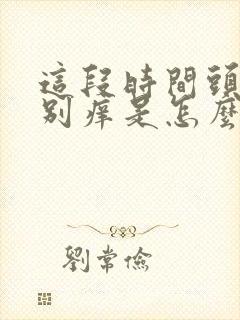 這段時間頭
别癢是怎麼
劉常儉